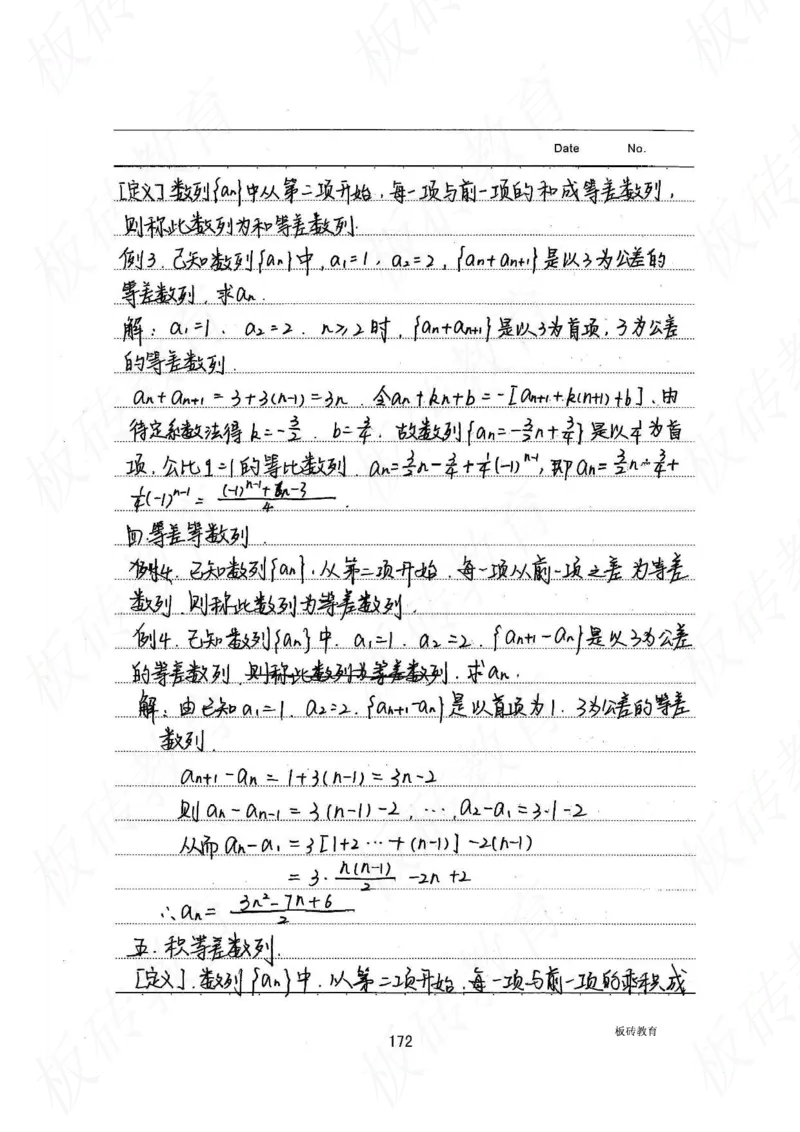 Date No.
[定义] 数列{an}中从第二项开始,每一项与前一项的和成等差数列,
则称此数列为和等差数列.
例3. 已知数列{an}中, a₁=1, a₂=2, {an+an+1}是以3为公差的
等差数列, 求an.
解: a₁=1. a₂=2. n≥2时, {an+an+1}是以3为首项, 3为公差
的等差数列.
an+an+1 = 3+3(n-1)=3n. 令an+kn+b=-[an+1+k(n+1)+b]. 由
待定系数法得 k=-3/2. b=3/4. 故数列{an=-3/2n+3/4}是以1/4为首
项, 公比q=1的等比数列. an=3/2n-3/4+1/4(-1)ⁿ⁻¹, 即an=3/2n-3/4+
1/4(-1)ⁿ⁻¹ = ((-1)ⁿ⁻¹+6n-3)/4.
四.等差等数列.
例4. 已知数列{an}, 从第二项开始, 每一项从前一项之差为等差
数列, 则称此数列为等差数列.
例4. 已知数列{an}中. a₁=1. a₂=2. {an+1-an}是以3为公差
的等差数列, 则称此数列为等差数列. 求an.
解: 由已知a₁=1. a₂=2. {an+1-an}是以首项为1. 3为公差的等差
数列.
an+1-an = 1+3(n-1) = 3n-2
则 an-an-1 = 3(n-1)-2, ⋯, a₂-a₁=3·1-2
从而 an-a₁ = 3[1+2⋯+(n-1)]-2(n-1)
= 3·n(n-1)/2 -2n+2
∴an= (3n²-7n+6)/2
五.积等差数列.
[定义]. 数列{an}中, 从第二项开始, 每一项与前一项的乘积成
板砖教育
172